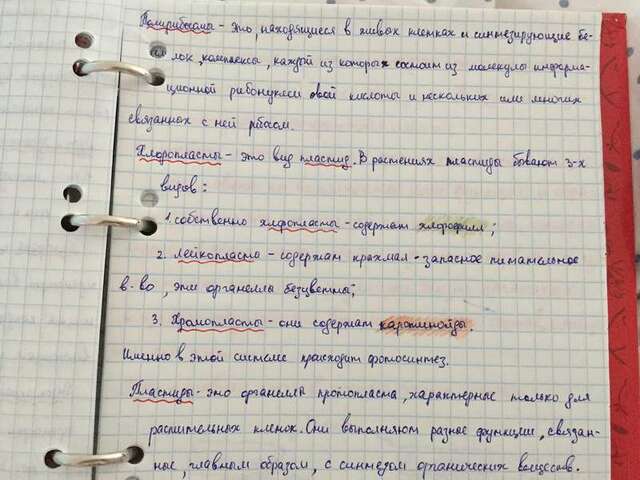 Полирибосома - это, находящиеся в живых клетках и синтезирующие бе-
лок, комплексы, каждой из которых состоит из молекулы информа-
ционной рибонуклеи овой кислоты и нескольких или многих
связанных с ней рибосом
Хлоропласты - это вид пластид. В растениях пластиды бывают 3-х
видов:
1. собственно хлоропласты - содержат хлорофилл;
2. лейкопласты - содержат крахмал - запасное питательное
в-во, эти органеллы безцветны;
3. Хромопласты - они содержат каротиноиды.
Именно в этой системе происходит фотосинтез.
Пластиды - это органеллы протопласта, характерное только для
растительных клеток. Они выполняют разные функции, связан-
ные, главным образом, с синтезом органических веществ.